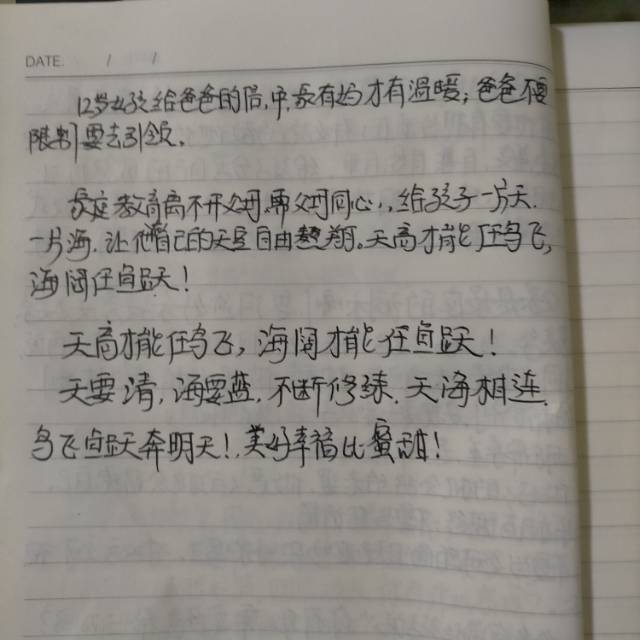 DATE. / /
12岁女孩给爸爸的信,中家有妈才有温暖;爸爸不要
限制要去引领。
家庭教育离不开父母,需父母同心,,给孩子一方天.
一片海.让他自己的天空自由翱翔。天高才能任鸟飞,
海阔任鱼跃!
天高才能任鸟飞,海阔才能任鱼跃!
天要清,海要蓝.不断修练.天海相连.
鸟飞鱼跃奔明天!.美好幸福比蜜甜!